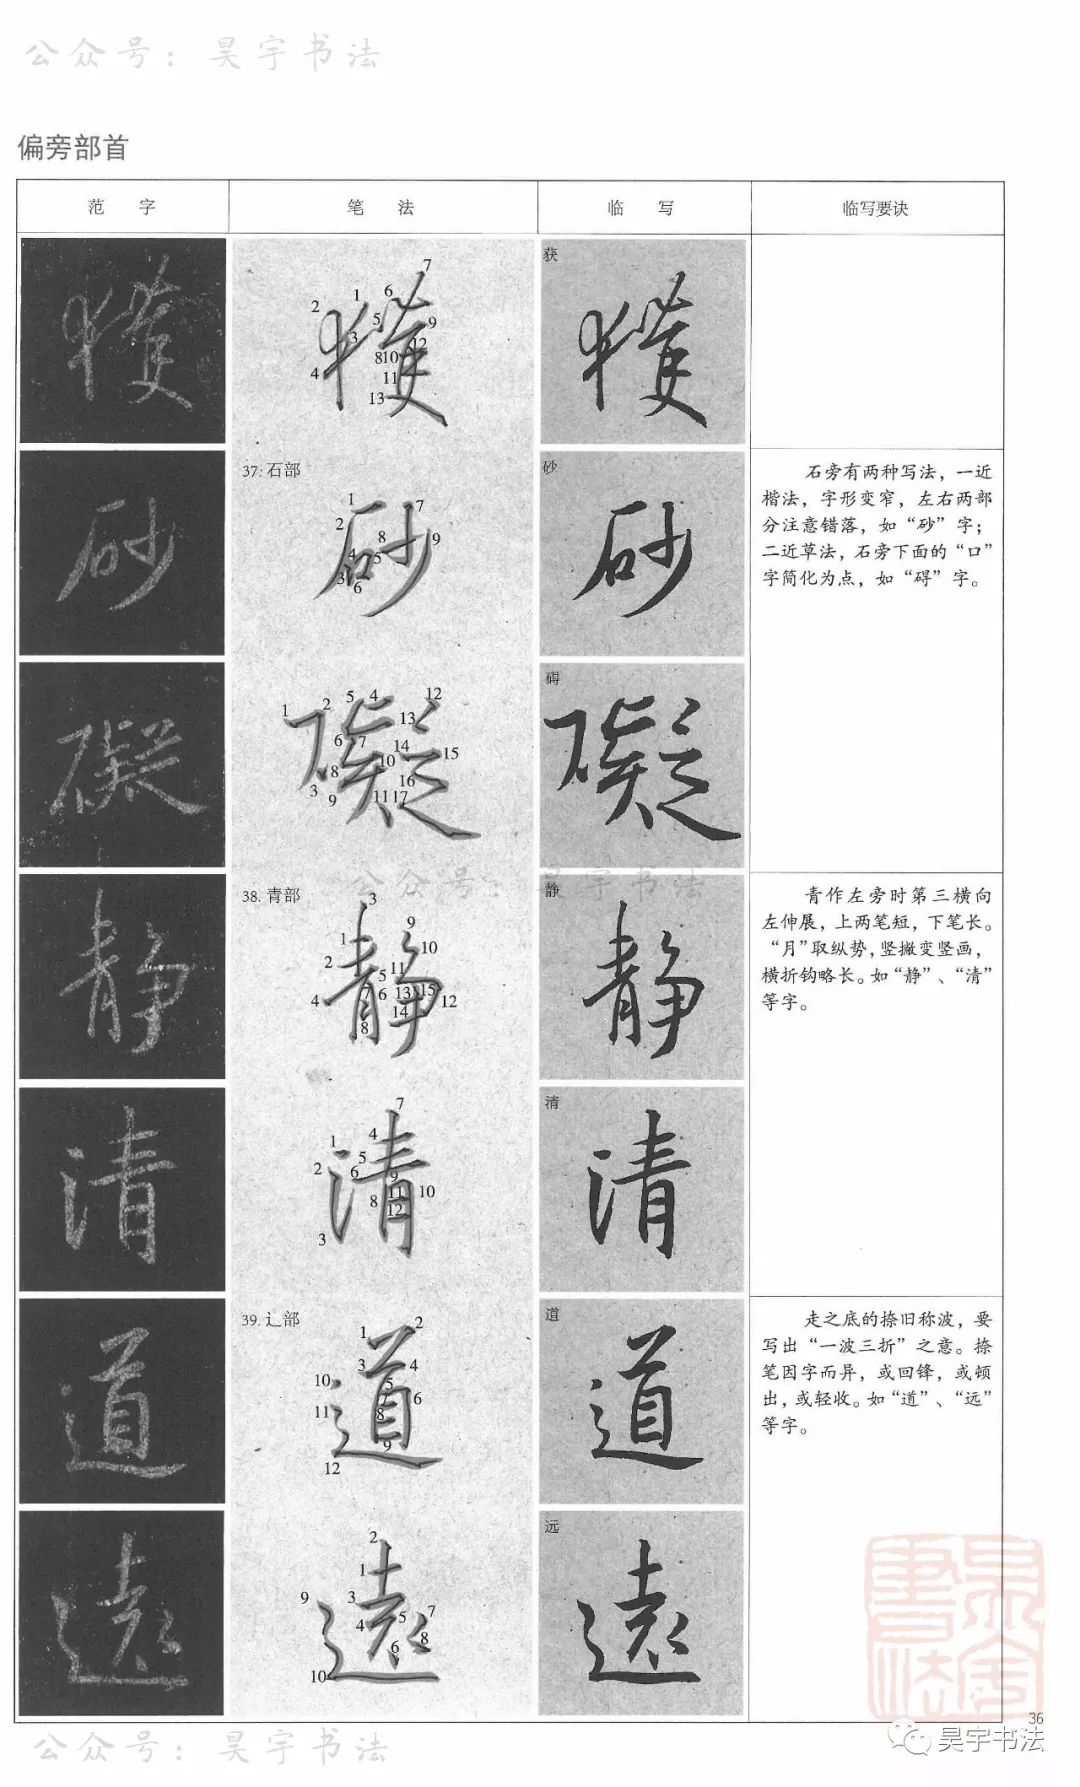 公众号：昊宇书法
偏旁部首
范 字 笔 法 临 写 临写要诀
獲 1 2 3 4 5 6 7 8 9 10 11 12 13 获
37. 石部
砂 1 2 3 4 5 6 7 8 9 砂
石旁有两种写法，一近
楷法，字形变窄，左右两部
分注意错落，如“砂”字；
二近草法，石旁下面的“口”
字简化为点，如“碍”字。
礙 1 2 3 4 5 6 7 8 9 10 11 12 13 14 15 16 17 碍
公众号：昊宇书法
38. 青部
静 1 2 3 4 5 6 7 8 9 10 11 12 13 14 15 静
青作左旁时第三横向
左伸展，上两笔短，下笔长。
“月”取纵势，竖撇变竖画，
横折钩略长。如“静”、“清”
等字。
清 1 2 3 4 5 6 7 8 9 10 11 12 清
39. 辶部
道 1 2 3 4 5 6 7 8 9 10 11 12 道
走之底的捺旧称波，要
写出“一波三折”之意。捺
笔因字而异，或回锋，或顿
出，或轻收。如“道”、“远”
等字。
遠 1 2 3 4 5 6 7 8 9 10 远
36
昊宇书法
公众号：昊宇书法